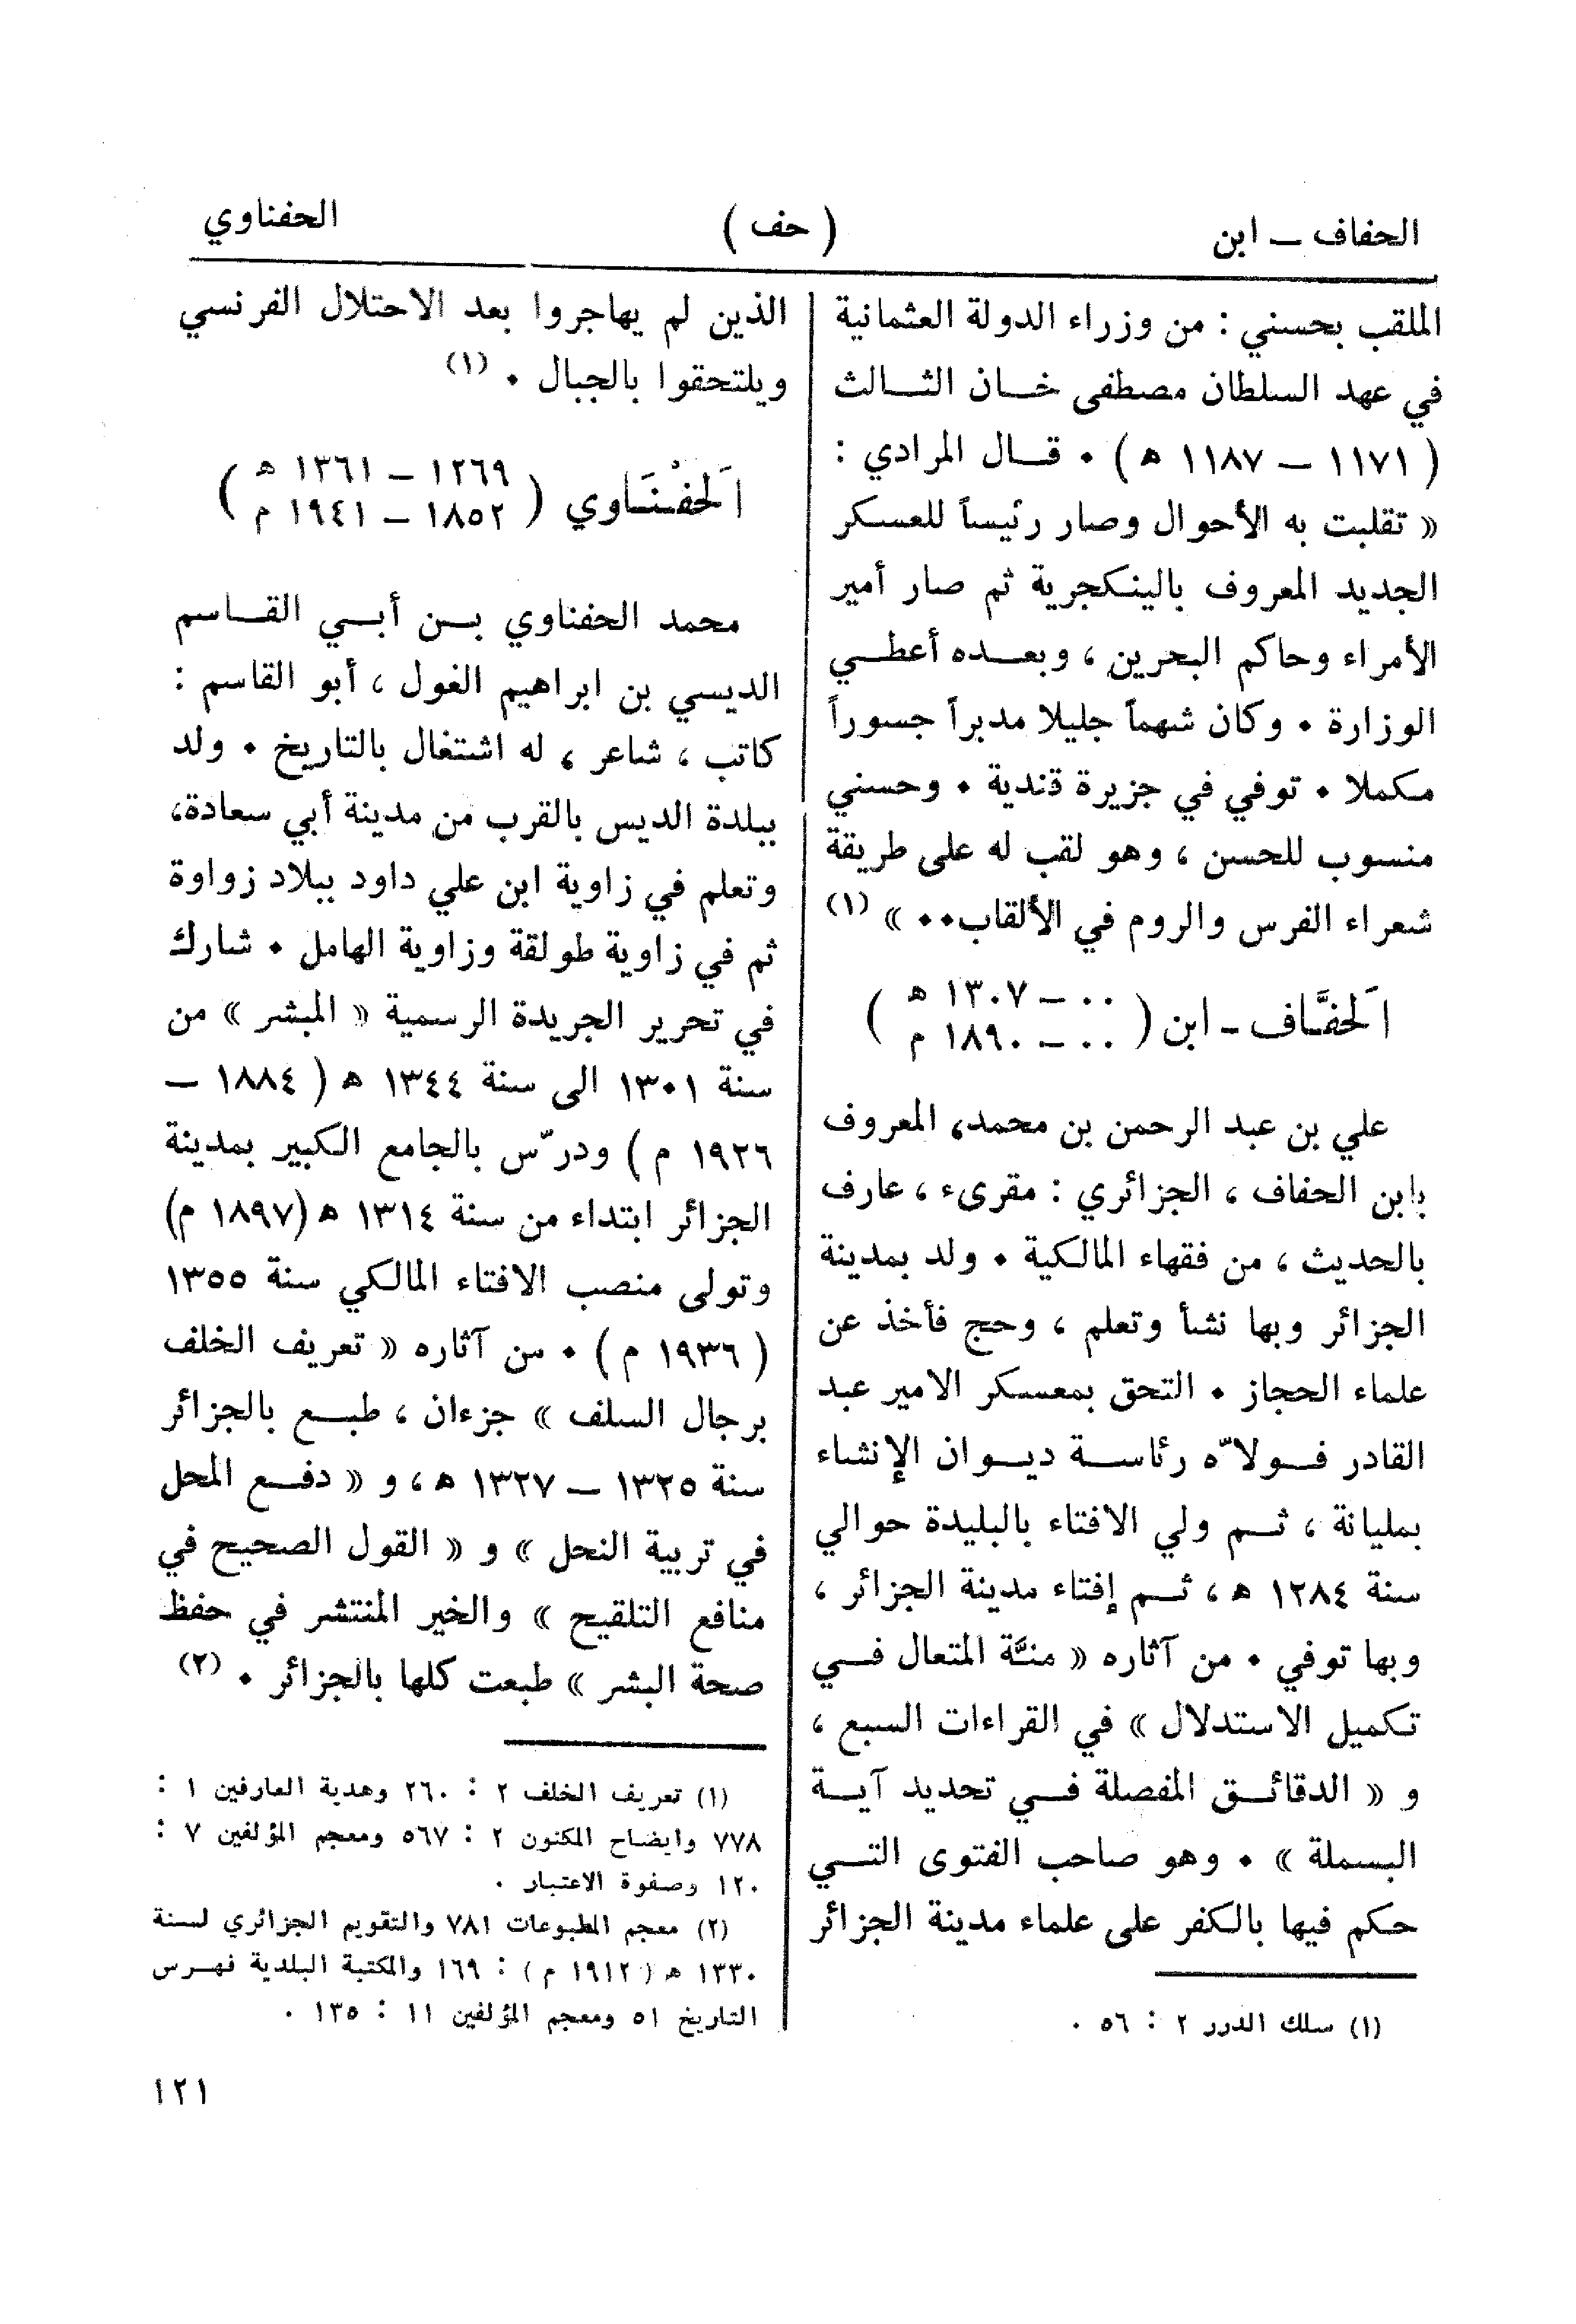 الحفاف ــ ابن
( حف )
الحفناوي
الملقب بحسني : من وزراء الدولة العثمانية
في عهد السلطان مصطفى خــان الثــالث
( ١١٧١ ــ ١١٨٧ هـ ) ٠ قــال المرادي :
« تقلبت به الأحوال وصار رئيساً للعسكر
الجديد المعروف بالينكجرية ثم صار أمير
الأمراء وحاكم البحرين ، وبعــده أعطــي
الوزارة ٠ وكان شهماً جليلا مدبراً جسوراً
مكملا ٠ توفي في جزيرة قندية ٠ وحسني
منسوب للحسن ، وهو لقب له على طريقة
شعراء الفرس والروم في الألقاب٠٠ » (١)
اَلحفَّاف ـ ابن ( ٠٠ ــ ١٣٠٧ هـ / ٠٠ ــ ١٨٩٠ م )
علي بن عبد الرحمن بن محمد، المعروف
بابن الحفاف ، الجزائري : مقرىء ، عارف
بالحديث ، من فقهاء المالكية ٠ ولد بمدينة
الجزائر وبها نشأ وتعلم ، وحج فأخذ عن
علماء الحجاز ٠ التحق بمعسكر الامير عبد
القادر فــولاّه رئاســة ديــوان الإنشاء
بمليانة ، ثــم ولي الافتاء بالبليدة حوالي
سنة ١٢٨٤ هـ ، ثــم إفتاء مدينة الجزائر ،
وبها توفي ٠ من آثاره « منَّة المتعال فــي
تكميل الاستدلال » في القراءات السبع ،
و « الدقائــق المفصلة فــي تحديد آيــة
البسملة » ٠ وهو صاحب الفتوى التــي
حكم فيها بالكفر على علماء مدينة الجزائر
(١) سلك الدرر ٢ : ٥٦ ٠
الذين لم يهاجروا بعد الاحتلال الفرنسي
ويلتحقوا بالجبال ٠ (١)
اَلحفْنَـاوي ( ١٢٦٩ ــ ١٣٦١ هـ / ١٨٥٢ ــ ١٩٤١ م )
محمد الحفناوي بــن أبــي القــاسم
الديسي بن ابراهيم الغول ، أبو القاسم :
كاتب ، شاعر ، له اشتغال بالتاريخ ٠ ولد
ببلدة الديس بالقرب من مدينة أبي سعادة،
وتعلم في زاوية ابن علي داود ببلاد زواوة
ثم في زاوية طولقة وزاوية الهامل ٠ شارك
في تحرير الجريدة الرسمية « المبشر » من
سنة ١٣٠١ الى سنة ١٣٤٤ هـ ( ١٨٨٤ ــ
١٩٢٦ م ) ودرّس بالجامع الكبير بمدينة
الجزائر ابتداء من سنة ١٣١٤ هـ (١٨٩٧ م)
وتولى منصب الافتاء المالكي سنة ١٣٥٥
( ١٩٣٦ م ) ٠ من آثاره « تعريف الخلف
برجال السلف » جزءان ، طبــع بالجزائر
سنة ١٣٢٥ ــ ١٣٢٧ هـ ، و « دفــع المحل
في تربية النحل » و « القول الصحيح في
منافع التلقيح » والخير المنتشر في حفظ
صحة البشر » طبعت كلها بالجزائر ٠ (٢)
(١) تعريف الخلف ٢ : ٢٦٠ وهدية العارفين ١ :
٧٧٨ وايضاح المكنون ٢ : ٥٦٧ ومعجم المؤلفين ٧ :
١٢٠ وصفوة الاعتبار ٠
(٢) معجم المطبوعات ٧٨١ والتقويم الجزائري لسنة
١٣٣٠ هـ ( ١٩١٢ م ) : ١٦٩ والمكتبة البلدية فهــرس
التاريخ ٥١ ومعجم المؤلفين ١١ : ١٣٥ ٠
١٢١